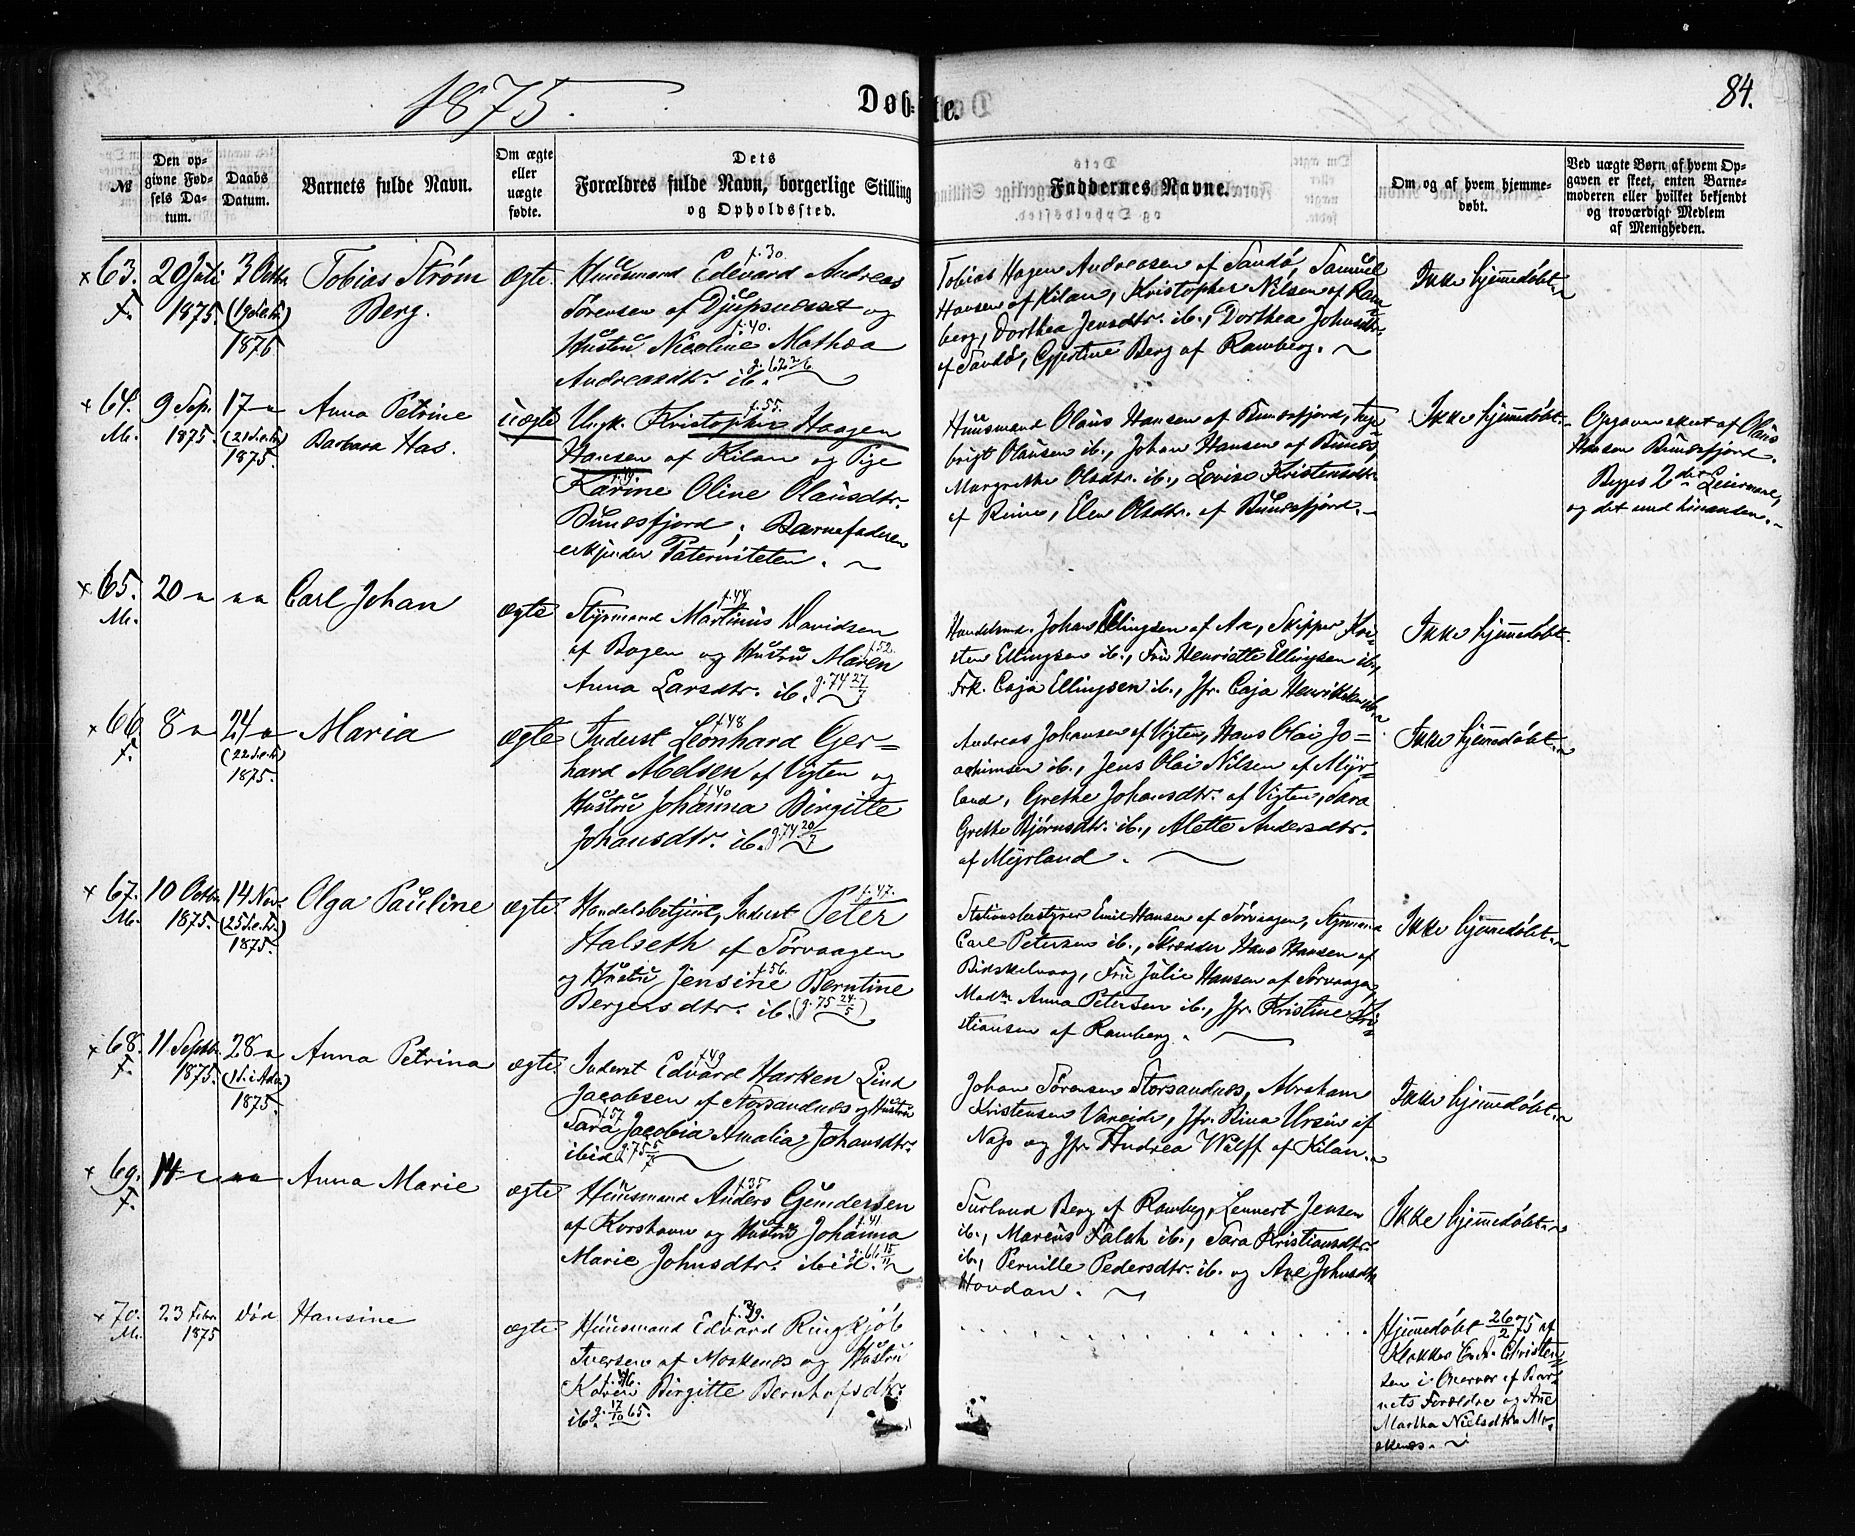 1875.
Døbte.
84.
№
Den opgivne Fødsels Datum.
Daabs Datum.
Barnets fulde Navn.
Om ægte eller uægte fødte.
Dets Forældres fulde Navn, borgerlige Stilling og Opholdssted.
Faddernes Navne.
Om og af hvem hjemmedøbt.
Ved uægte Børn af hvem Opgaven er skeet, enten Barnemoderen eller hvilket bekjendt og troværdigt Medlem af Menigheden.
63. F.
20 Juli 1875.
3 Octbr.
1875
Tobias Strøm
Berg.
ægte.
f. 30.
Huusmand Edevard Andreas
Sørensen af Djupsnæsset og
f. 40.
Hustru Nicoline Mathea
Andreasdtr. ib. g. 62 2/6
Tobias Hagen Andreasen af Sandø, Samuel
Hansen af Kilan, Kristopher Nilsen af Ram
berg, Dorthea Jensdtr. ib., Dorthea Johnsdtr.
af Sandø, Gjertine Berg af Ramberg.
Ikke hjemmedøbt
64. M.
9 Sep. 1875.
17 "
(21 S.e.Tr.) 1875.
Anna Petrine
Barbara Has.
uægte
f. 55.
Ungk. Kristopher Haagen
Hansen af Kilan og Pige
f. 49
Karine Oline Olausdtr.
Bunesfjord; Barnefaderen
erkjender Paterniteten.
Huusmand Olaus Hansen af Bunesfjord, Inge-
brigt Olausen ib., Johan Hansen af Bunes,
Margrethe Olsdtr. ib., Lovise Kristensdtr.
af Reine, Elen Olsdtr. af Bunesfjord.
Ikke hjemmedøbt.
Opgaven skeet af Olaus
Hansen Bunesfjord.
Begges 2det Leiermaal,
og det med hinanden.
65. M.
20 "
" "
Carl Johan
ægte
f. 44
Styrmand Martinus Davidsen
f. 52.
af Bogen og Hustru Maren
Anna Larsdtr. ib. g. 74 27/7
Handelsmd. Johan Ellingsen af Aa, Skipper Kri-
sten Ellingsen ib., Fru Henriette Ellingsen ib.,
Frk. Caja Ellingsen ib., Jfr. Caja Henriksen ib.
Ikke hjemmedøbt.
66. F.
8 "
24 "
(22 S.e.Tr.) 1875.
Maria
ægte
f. 48
Inderst Leonhard Ger-
hard Abelsen af Vigten og
f. 40
Hustru Johanna Birgitte
Johansdtr. ib. g. 74 20/7
Andreas Johansen af Vigten, Hans Olai Jo-
achimsen ib., Jens Olai Nilsen af Myr-
land, Grethe Johansdtr. af Vigten, Sara
Grethe Bjørnsdtr. ib., Alette Andersdtr.
af Myrland.
Ikke hjemmedøbt.
67. M.
10 Octbr. 1875.
14 Nov.
(25 S.e.Tr.) 1875.
Olga Pauline
ægte
f. 47.
Handelsbetjent, Inderst Peter
Halseth af Sørvaagen
f. 56.
og Hustru Jensine Berntine
Bergersdtr. ib. (g. 75 24/5)
Stationsbestyrer Emil Hansen af Sørvaagen, Styrmand
Carl Petersen ib., Skrædder Hans Hansen af
Fru Julie Hansen af Sørvaagen,
Madm. Anna Petersen ib., Jfr. Kristine Kri-
stiansen af Ramberg.
Ikke hjemmedøbt.
68. F.
11 Septbr. 1875.
28 "
(1 S. i Adv.) 1875.
Anna Petrina
ægte
f. 49
Inderst Edvard Harken Lind
Jacobsen af Storsandnæs og Hustru
f. 57
Sara Jacobia Amalia Johansdtr.
ibid. g. 75
Johan Sørensen Storsandnæs, Abraham
Kristensen Vareide, Jfr. Bina Ursin af
Naps og Jfr. Andrea Wulff af Kilan.
Ikke hjemmedøbt.
69. F.
14 "
" "
Anna Marie
ægte
f. 35
Huusmand Anders Gundersen
f. 41
af Korshavn og Hustru Johanna
Marie Johnsdtr. ibid. g. 66 15/11
Berg af Ramberg, Lennert Jensen
ib., Marcus Falch ib., Sara Kristiansdtr.
ib., Pernille Pedersdtr. ib. og Ane Johnsdtr.
Hovdan.
Ikke hjemmedøbt.
70. M.
23 Febr. 1875
død
Hansine
ægte.
f. 39.
Huusmand Edvard Ringkjöb
Iversen af Moskenæs og Hustru
f. 46.
Karen Birgitte Bernhofsdtr.
ib. g. 17/10 65.
Hjemmedøbt 26/2 75 af
Klokker E. A. Christen-
sen i Overvær af Bar-
nets Forældre og Ane
Martha Nielsdtr. Mo-
skenæs.